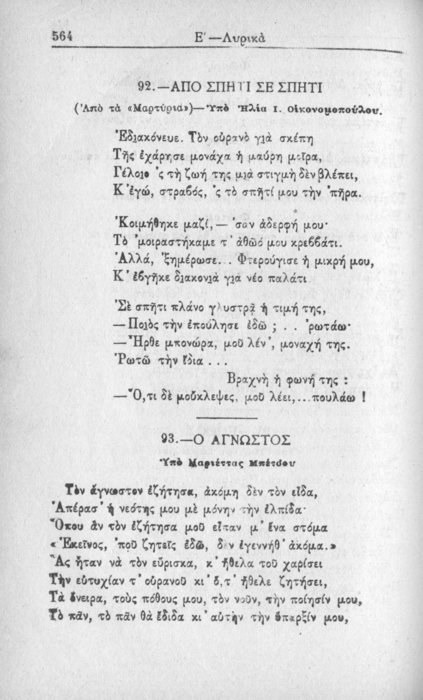 564
Ε΄—Λυρικὰ
92.—ΑΠΟ ΣΠΗΤΙ ΣΕ ΣΠΗΤΙ
(Ἀπὸ τὰ «Μαρτύρια»)—Ὑπὸ Ἠλία Ι. Οἰκονομοπούλου.
Ἐδιακόνευε. Τὸν οὐρανὸ γιὰ σκέπη
Τῆς ἐχάρησε μονάχα ἡ μαύρη μοῖρα,
Γέλοιο ’ς τὴ ζωή της μιὰ στιγμὴ δὲν βλέπει,
Κ’ ἐγώ, στραβός, ’ς τὸ σπῆτί μου τὴν ’πῆρα.
Κοιμήθηκε μαζί, — ’σὰν ἀδερφή μου·
Τὸ ’μοιραστήκαμε τ’ ἀθῶό μου κρεββάτι.
Ἀλλά, ’ξημέρωσε... Φτερούγισε ἡ μικρή μου,
Κ’ ἐβγῆκε διακονιὰ γιὰ νέο παλάτι.
Σὲ σπῆτι πλάνο γλυστρᾷ ἡ τιμή της,
—Ποιὸς τὴν ἐπούλησε ἐδῶ ; . . ’ρωτάω·
—Ἦρθε μπονώρα, μοῦ λέν’, μοναχή της.
Ῥωτῶ τὴν ἴδια . . .
Βραχνὴ ἡ φωνή της :
—Ὅ,τι δὲ μοὔκλεψες, μοῦ λέει,...πουλάω !
93.—Ο ΑΓΝΩΣΤΟΣ
Ὑπὸ Μαριέττας Μπέτσου
Τὸν ἄγνωστον ἐζήτησα, ἀκόμη δὲν τὸν εἶδα,
Ἀπέρασ’ ἡ νεότης μου μὲ μόνην τὴν ἐλπίδα·
Ὅπου ἂν τὸν ἐζήτησα μοῦ εἶπαν μ’ ἕνα στόμα
«Ἐκεῖνος, ’ποῦ ζητεῖς ἐδῶ, δὲν ἐγεννήθ’ ἀκόμα.»
Ἂς ἦταν νὰ τὸν εὕρισκα, κ’ ἤθελα τοῦ χαρίσει
Τὴν εὐτυχίαν τ’ οὐρανοῦ κι’ ὅ,τ’ ἤθελε ζητήσει,
Τὰ ὄνειρα, τοὺς πόθους μου, τὸν νοῦν, τὴν ποίησίν μου,
Τὸ πᾶν, τὸ πᾶν θὰ ἔδιδα κι’ αὐτὴν τὴν ὕπαρξίν μου,